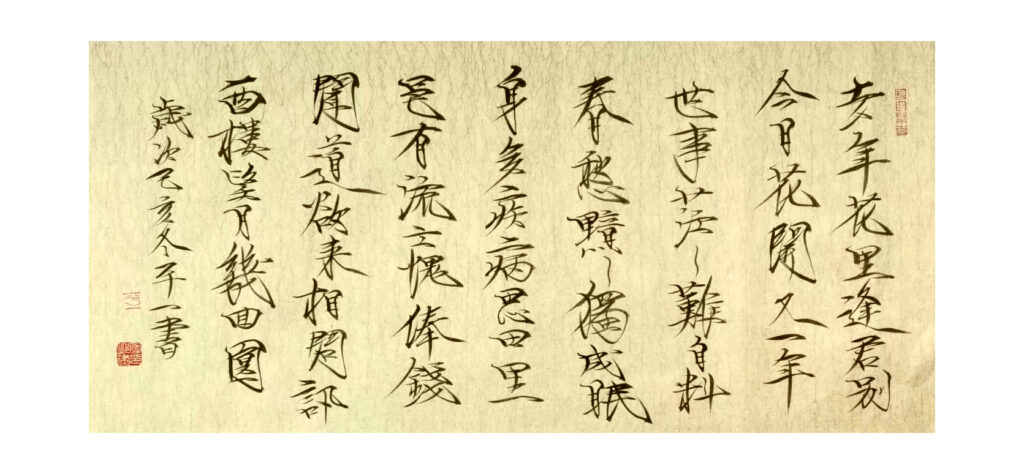 去年花里逢君别
今日花開又一年
世事茫々難自料
春愁黯々獨成眠
身多疾病思田里
邑有流亡愧俸錢
聞道欲来相問訊
西樓望月幾回圓
歲次己亥冬平一書